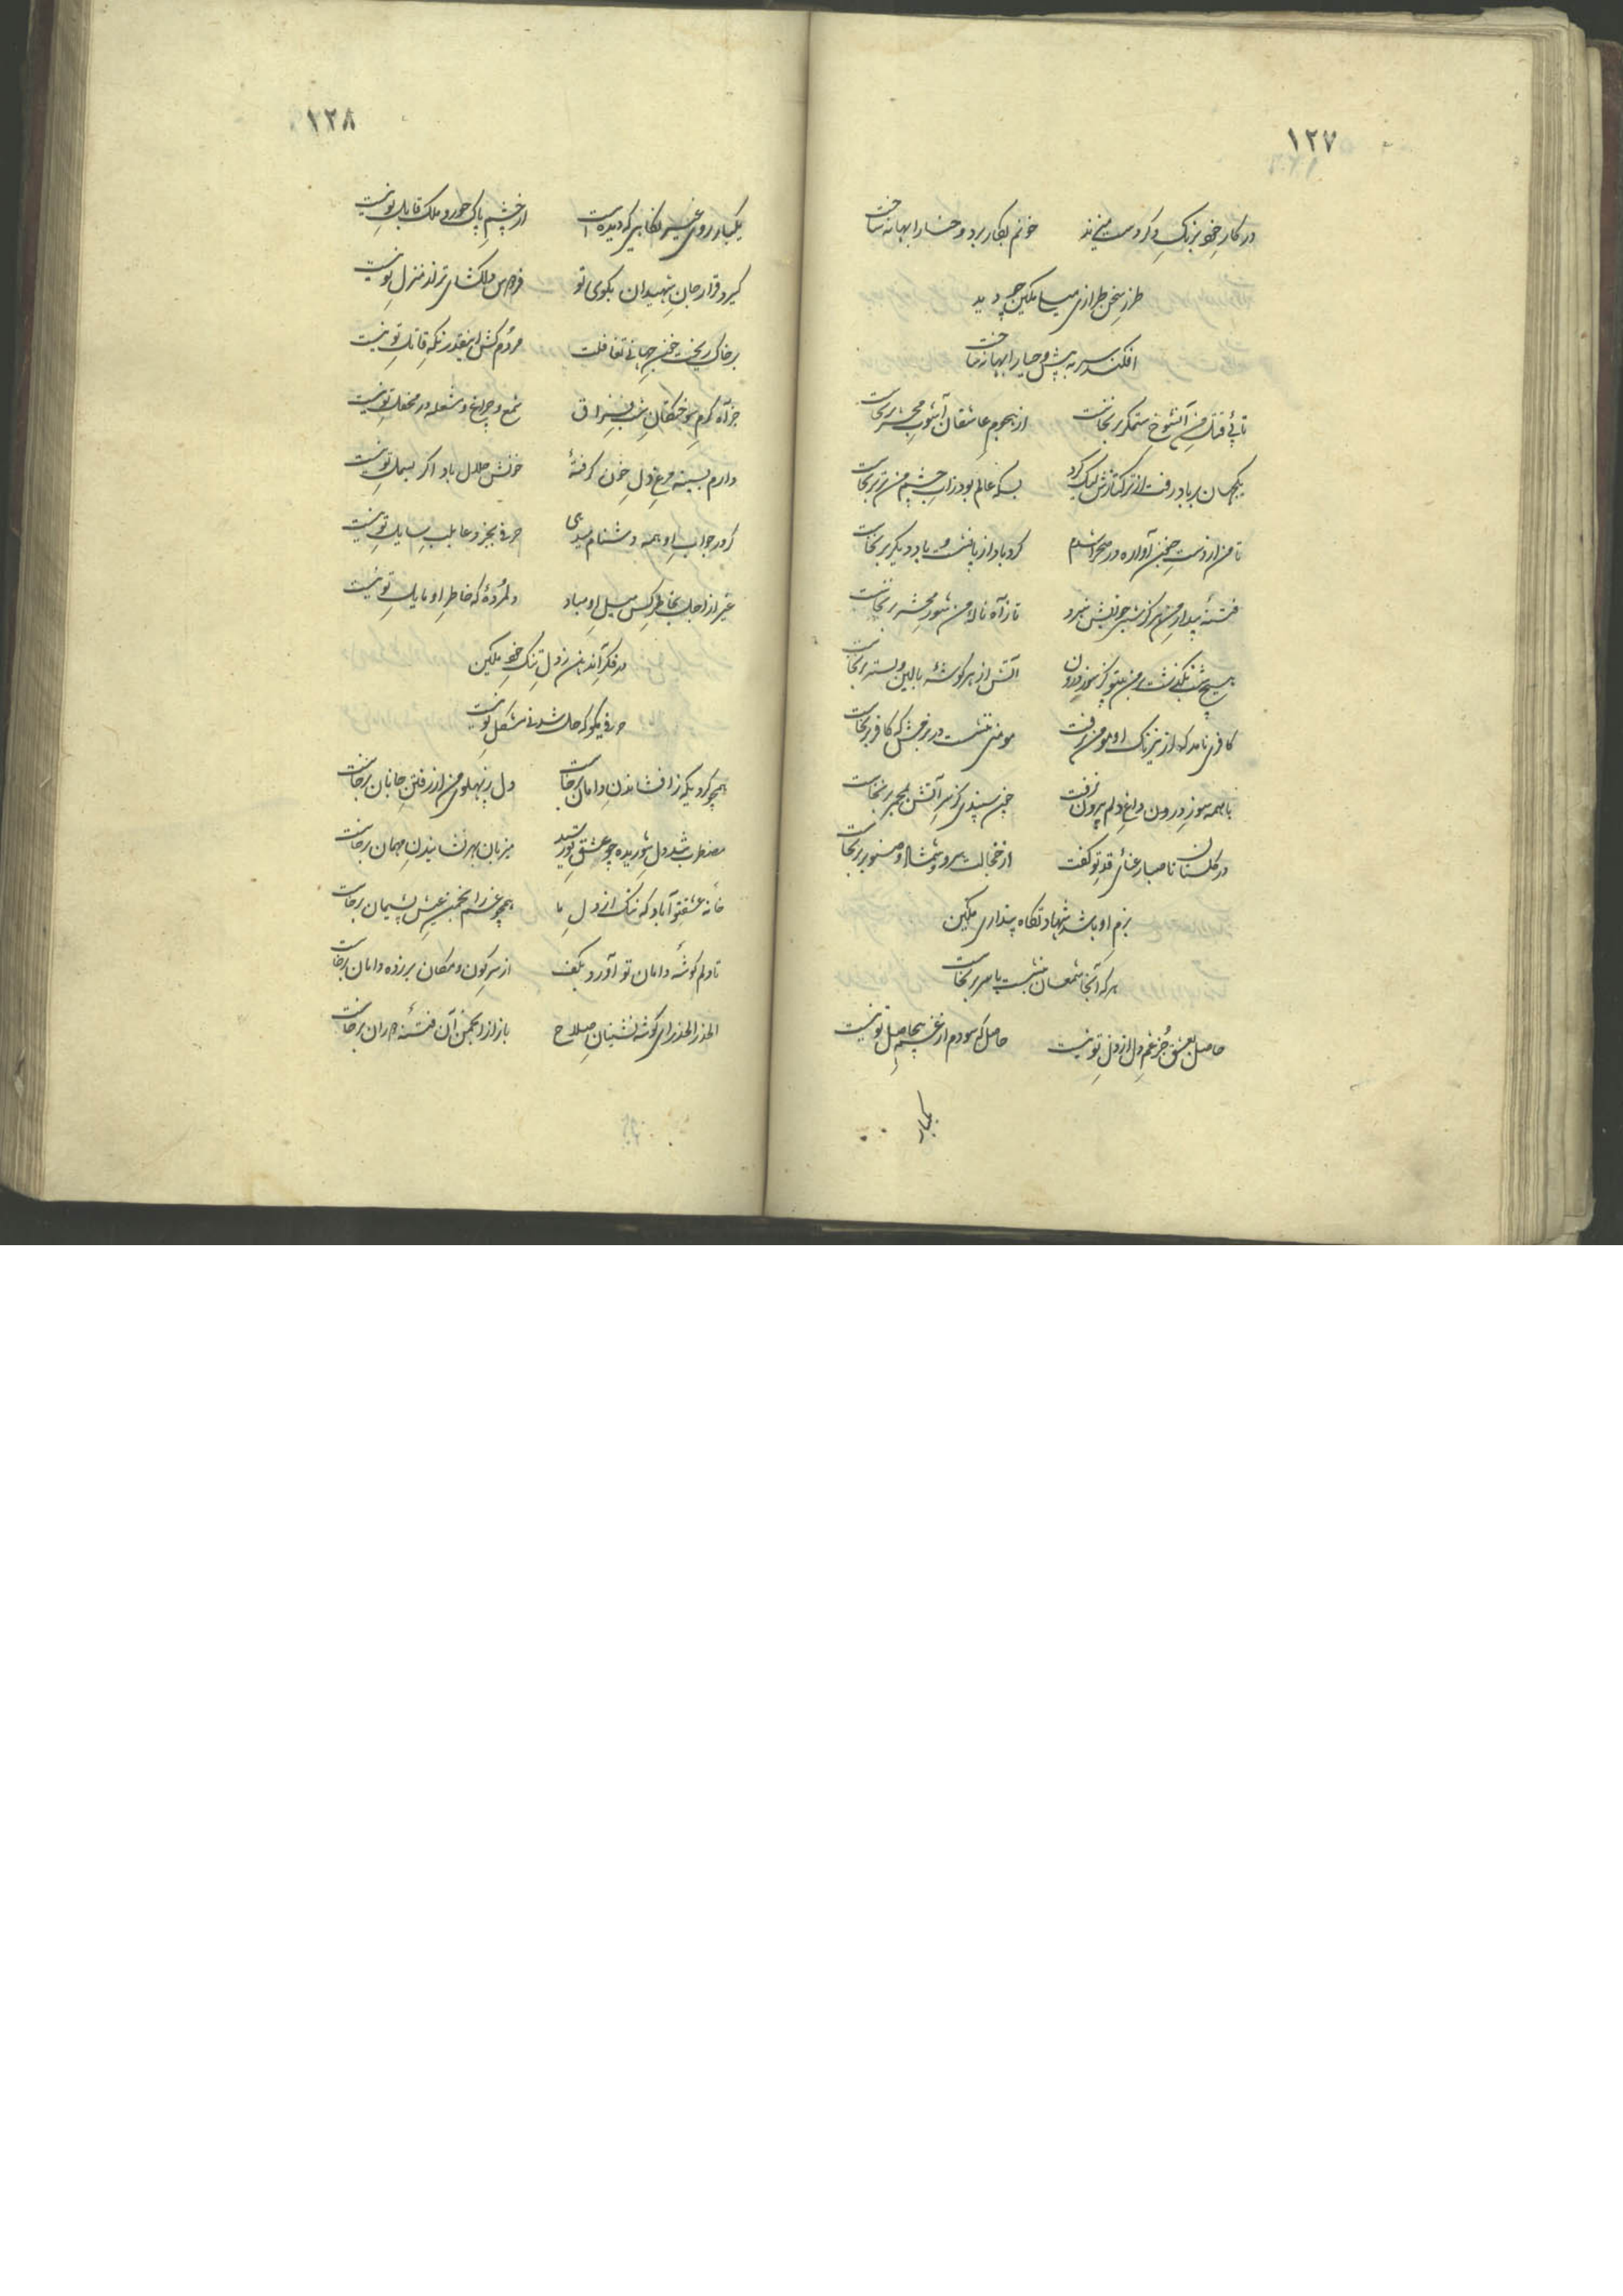 ۱۲۷
در کار خود بزنک دکر دست میزند خونم بکار برد و حنا را بهانه ساخت
طرز سخن طرازی میسا مکین چو دید
افکند سر به پیش و حیا را بهانه ساخت
تا پئ قتل من آنشوخ ستمکر برنخاست از هجوم عاشقان آشوب محشر برنخاست
یکجهان بر باد رفت از ترکتازش لیک کرد بسکه عالم بود ز آب چشم من تر برنخاست
تا من از دست جنون آواره در صحرا شدم کردباد از پا نشست و باد دیکر برنخاست
فتنهٔ بیدار من هرکز شبی خوابش نبرد تا ز آه و ناله من شور محشر برنخاست
هیچ شب نکذشت بر من بیتو کز سوز درون آتش از هر کوشهٔ بالین و بستر برنخاست
کافری نامد که از نیرنک او مومن نرفت مومنی ننشست در بزمش که کافر برنخاست
با همه سوز درون داغ دلم بیرون نرفت چون سپندی کز سر آتش بمجمر برنخاست
در کلستان تا صبا رعنائی قد تو کفت از خجالت سرو و شمشاد و صنوبر برنخاست
بزم او باشد شهادتکاه پنداری مکین
هر که آنجا شمعسان بنشست با سر برنخاست
حاصل بعشق جز غم دل از دل تو نیست حاصل که سودم از غم بیحاصل تو نیست
یکبار
۱۲۸
یکبار روی غیر نکاهی که دیده است از چشم پاک حور و ملک قابل تو نیست
کیرد قرار جان شهیدان بکوی تو فردوس دلکشای تر از منزل تو نیست
بر خاک ریخت خون جهانی تغافلت مردم کش اینقدر نکه قاتل تو نیست
جز آه کرم سوختکان شب فراق شمع و چراغ و شعله در محفل تو نیست
دارم بسینه مرغ دل خون کرفتهٔ خونش حلال باد اکر بسمل تو نیست
کو در جواب او همه دشنام میدهی حرفی بجز دعا بلب سایل تو نیست
غیر از اجل بخاطر کس میل او مباد دلمردهٔ که خاطر او مایل تو نیست
در فکر آندهان ز دل تنک خود مکین
حرفی مکو که حل شدنی مشکل تو نیست
همچو کردیکه ز افشاندن دامان برخاست دل ز پهلوی من از رفتن جانان برخاست
مضطرب شد دل شوریده چو عشق تو رسید میزبان بهر نشانیدن مهمان برخاست
خانه عشق تو آباد که نک از دل ما همچو غم ز انجمن عیش پشیمان برخاست
تا دلم کوشهٔ دامان تو آورد بکف از سر کون و مکان بر زده دامان برخاست
الحذر الحذر ای کوشه نشینان صلاح باز از انجمن آن فتنهٔ دوران برخاست